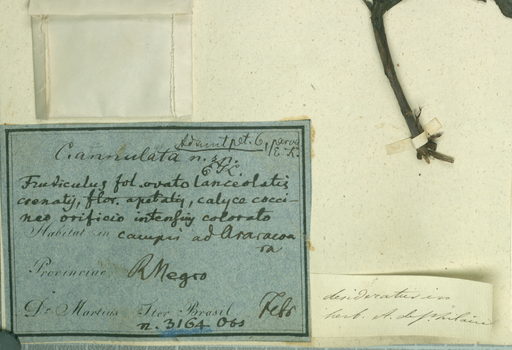 Adsunt pet. 6, parva
E. K.
C. annulata n. sp.
E K.
Fruticulus fol. ovato lanceolatis
crenatis, flor. apetalis, calyce cocci-
neo orificio intensius colorato
Habitat in campis ad Araracoa
ra
Provinciae R Negro
Dr. Martius Iter Brasil. Febr
n. 3164 Obs
desideratur in
herb. A. de St hilaire